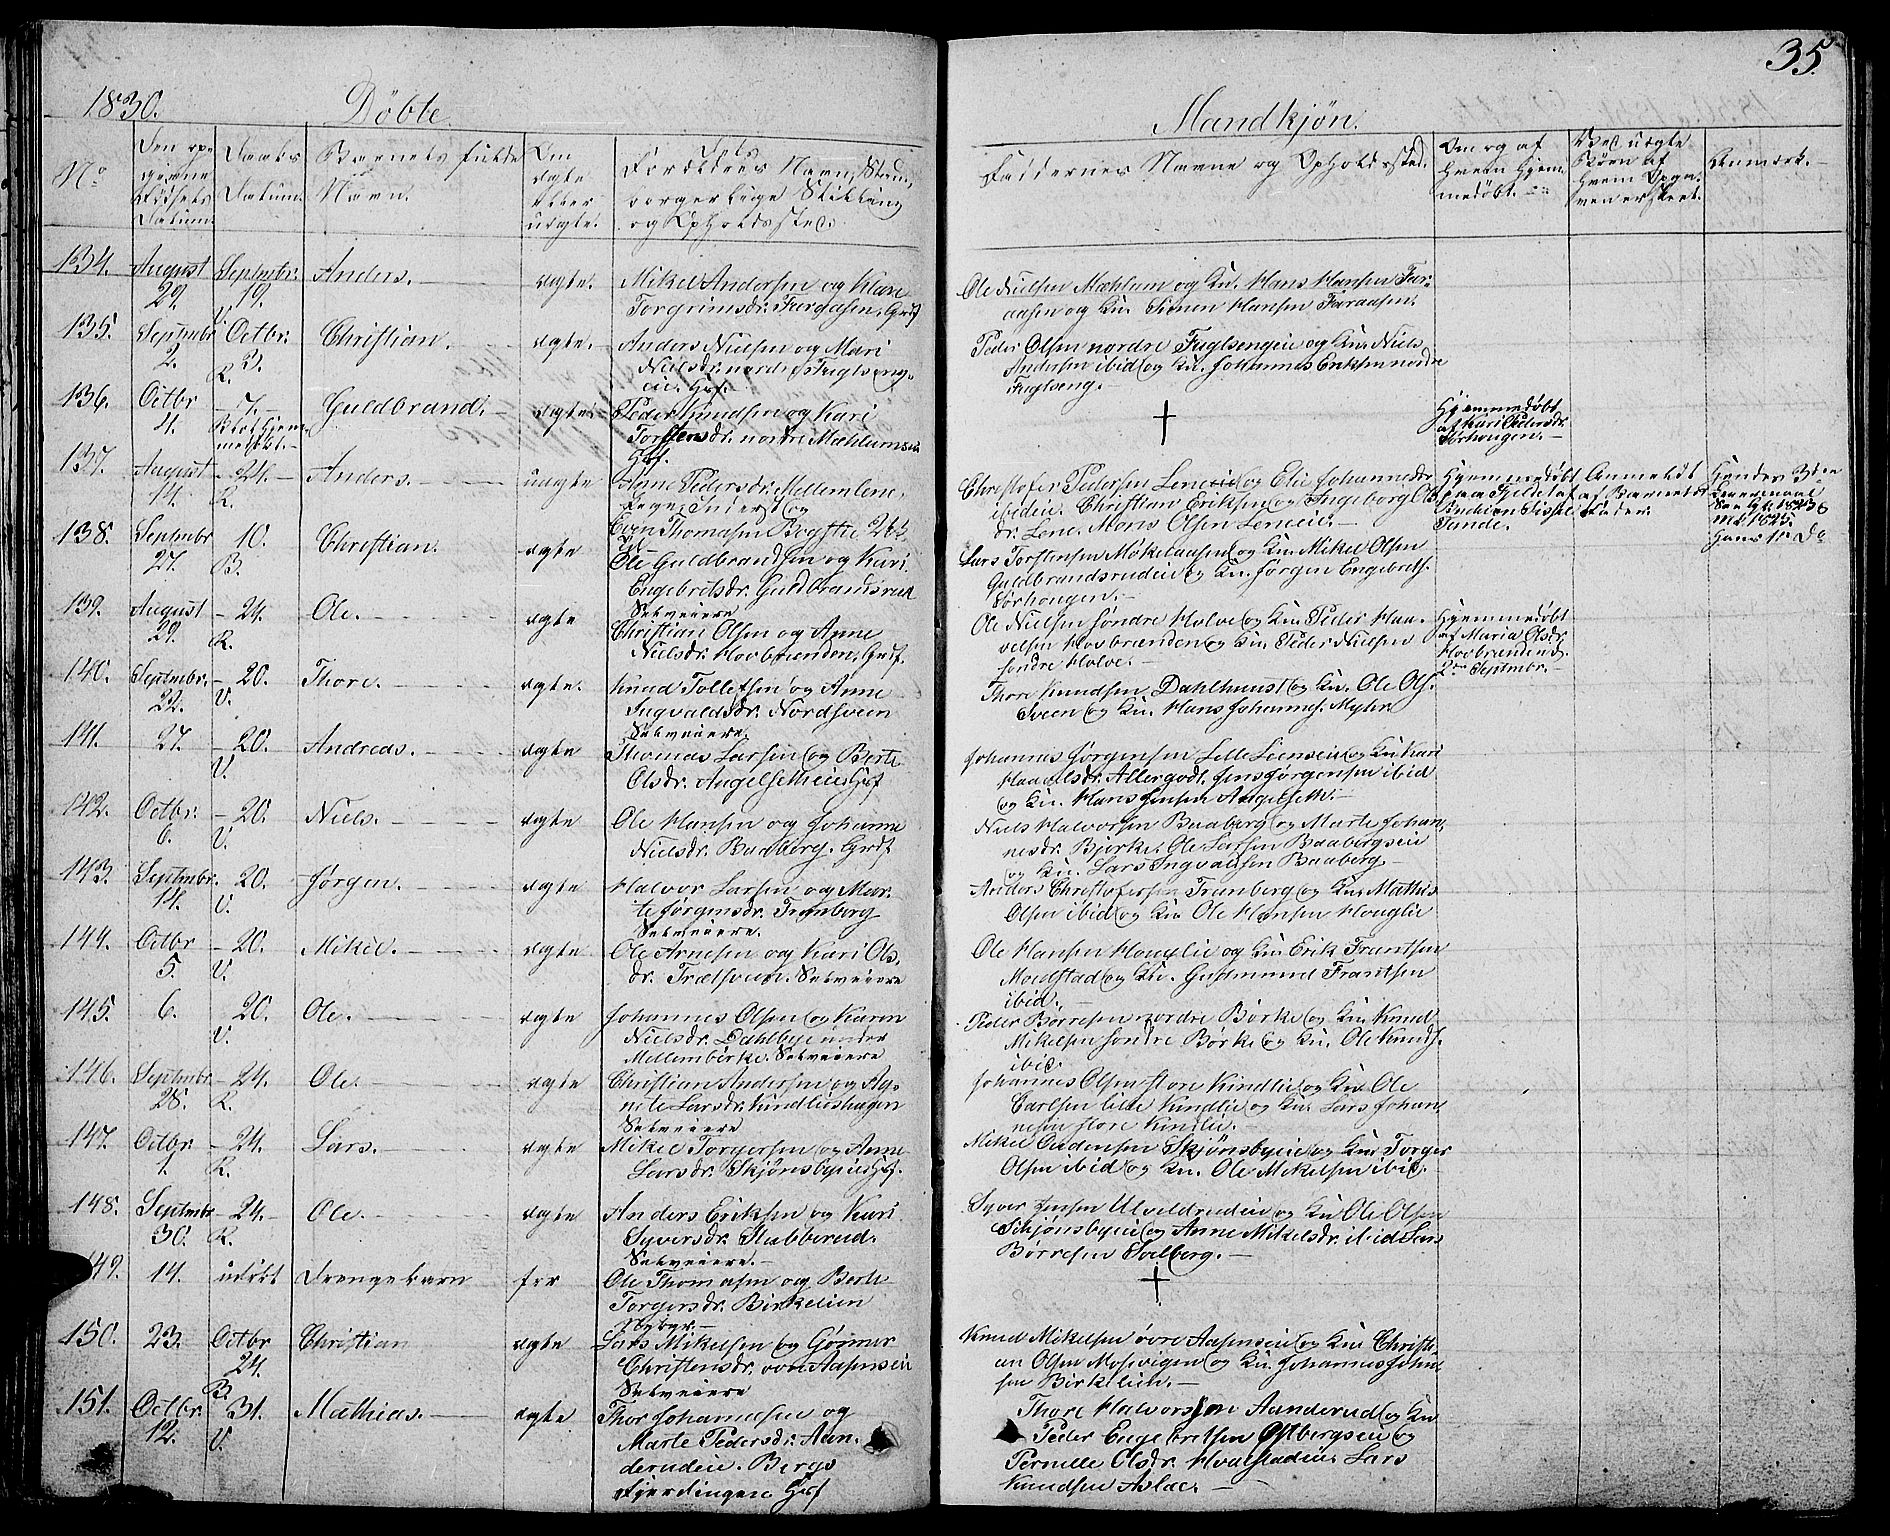 35.
1830. Döbte Mandkjön.
No
Den op-
givne
Födsels
Datum.
Daabs
Datum.
Barnets fulde
Navn.
Om
ægte
eller
uægte.
Forældres Navn, Stand,
borgerlige Stilling
og Opholdssted.
Faddernes Navne og Opholdssted.
Om og af
hvem hjem-
medöbt.
Ved uægte
Börn af
hvem Opgi-
ven er skeet.
Anmærk.
134. August 29. Septmbr. 19. V. Anders. ægte.
Mikel Andersen og Kari
Torgrimsdr. Faraasen, Grdf
Ole Nielsen Mæhlum og Kn. Hans Hansen Far-
aasen og Kn. Simen Hansen Faraasen.
135. Septmbr 2. Octbr. 3. R. Christian. ægte.
Anders Nielsen og Mari
Nielsdr. nordre Fuglseng-
eie. Hsf.
Peder Olsen nordre Fuglsengeie og Kn. Niels
Andersen ibid og Kn. Johannes Eriksen nordre
Fuglseng.
136. Octbr 4. - 7. - Blot hjem-
medöbt. Guldbrand. ægte
Peder Knudsen og Kari
Torstensdr. nordre Mæhlumseie
Hsf.
†
Hjemmedöbt
af Kari Pedersdr.
Sörhougen.
137. August 14. - 24. R. Anders. uægte
Anne Pedersdr. Mellem Lene,
Pige, Inderst og
Even Thomasen
Christofer Pedersen Leneeie og Elie Johannesdr
ibideie. Christian Eriksen og Ingeborg Ols-
dr. Lene. Mons Olsen Leneeie.
Hjemmedöbt
Anmeldt
af Barnets
Fader.
Hendes 3die
Leiermaal
Hans 1ste Do
138. Septmbr 27. 10. B. Christian. ægte
Ole Guldbrandsen og Kari
Engebretsdr. Guldbrandsrud
Selveiere
Lars Torstensen Mökelaasen og Kn. Mikel Olsen
Guldbrandsrudeie og Kn. Jörgen Engebrets.
Sörhougen.
139. August 29. - 24. R. Ole. ægte
Christian Olsen og Anne
Nielsdr. Hovbrænden, Grdf.
Ole Nielsen söndre Holve og Kn. Peder Haa-
velsen Hovbrænden og Kn. Peder Nielsen
söndre Holve.
Hjemmedöbt
af Maria Olsdr.
Hovbrænden d.
2den Septmbr.
140. Septmbr. 22. - 20. V. Thore. ægte.
Knud Tollefsen og Anne
Ingvaldsdr. Nordsveen
Selveiere.
Thore Knudsen Dahlhuust og Kn. Ole Ols.
Sveen og Kn. Hans Johannes. Myhr
141. 27. - 20. V. Andreas. ægte
Thomas Larsen og Berte
Olsdr. Angelsetheie Hsf
Johannes Jörgensen Lille Lienseie og Kn. Kari
Haavelsdr. Allergodt. Jens Jörgensen ibid
og Kn. Hans Jensen Angelseth.
142. Octbr. 6. - 20. V. Niels. ægte
Ole Hansen og Johanne
Nielsdr. Baaberg. Grdf
Niels Halvorsen Baaberg og Marte Johan-
nesdr. Bjerke. Ole Larsen Baabergseie
og Kn. Lars Ingvaldsen Baaberg
143. Septmbr. 14. - 20. V. Jörgen. ægte
Halvor Larsen og Mar-
te Jörgensdr. Tranberg
Selveiere.
Anders Christofersen Tranberg og Kn. Mathis
Olsen ibid og Kn. Ole Hansen Houglie
144. Octbr 5. - 20. V. Mikel. ægte
Ole Arnesen og Kari Ols-
dr. Trælsveen. Selveiere
Ole Hansen Houglie og Kn. Erik Frantsen
Moldstad og Kn. Gudmund Frantsen
ibid.
145. 6. 20. V. Ole. ægte
Johannes Olsen og Karen
Nielsdr. Dahlbye under
Mellembirke. Selveiere
Peder Börresen nordre Börke og Kn. Knud
Mikelsen söndre Börke og Kn. Ole Knuds.
ibid.
146. Septmbr. 28. - 24. R. Ole. ægte
Christian Andersen og Ag-
nete Larsdr. Kindlieshagen
Selveiere
Johannes Olsen store Kindlie og Kn. Ole
Carlsen lille Kindlie og Kn. Lars Johan-
nesen store Kindlie.
147. Octbr 1. - 24. R. Lars. ægte
Mikel Torgersen og Anne
Larsdr. Skjönsbyeie Hsf.
Mikel Audensen Skjönsbyeie og Kn. Torger
Olsen ibid og Kn. Ole Mikelsen ibid.
148. Septmbr 30. - 24. R. Ole. ægte
Anders Eriksen og Kari
Syversdr. Stabberud.
Selveiere.
Syver Jensen Ulveldrudeie og Kn. Ole Olsen
Skjönsbyeie og Anne Mikelsdr. ibid Lars
Börresen Solberg.
149. 14. udöbt Drengebarn för
Ole Thomasen og Berte
Torgersdr. Birkelien
Nybyr.
†
150. 23. Octbr 24. B. Christian ægte
Lars Mikelsen og Gönner
Christensdr. övre Aasenseie
Selveiere
Knud Mikelsen övre Aasenseie og Kn. Christi-
an Olsen Mosevigen og Kn. Johannes Johan-
sen Birkelien.
151. Octbr. 12. 31. V. Mathias. ægte
Thor Johannesen og
Marte Pedersdr. Aan-
derudeie. Bergs
Fjerdingen Hsf
Thore Halvorsen Aanderud og Kn.
Peder Engebretsen Ostbergseie og
Pernille Olsdr. Hvalstadeie. Lars
Knudsen Aslac.